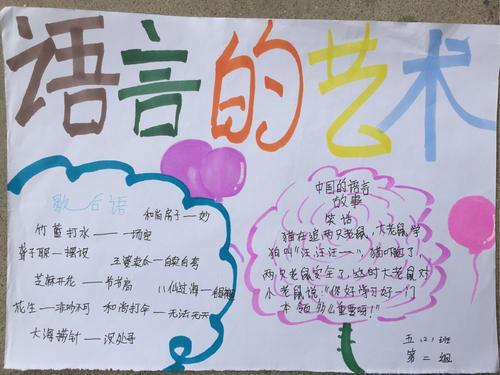 语言的艺术
歇后语
和尚房子——妙
竹篮打水——一场空
聋子耳——摆设
王婆卖瓜——自卖自夸
芝麻开花——节节高
八仙过海——
花生——非吵不可
和尚打伞——无法无天
大海捞针——深处寻
中国的语言
故事
笑话
猫在追两只老鼠,大老鼠学
狗叫“汪汪汪——”猫吓跑了,
两只老鼠安全了。这时大老鼠对
小老鼠说:“你好学习好一门
本领多么重要呀!”
五(2)班
第二组